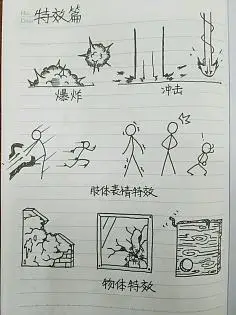 No.
特效篇
Date
爆炸 冲击
肢体表情特效
物体特效